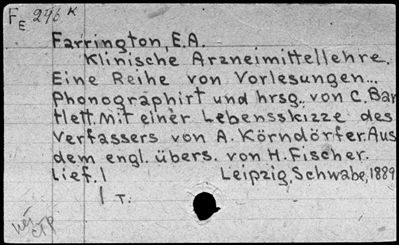 FE 246 K
Farrington, E.A.
Klinische Arzneimittellehre.
Eine Reihe von Vorlesungen...
Phonographirt und hrsg. von C. Bar
tlett. Mit einer Lebensskizze des
Verfassers von A. Körndörfer. Aus
dem engl. übers. von H. Fischer.
Lief. 1 Leipzig, Schwabe, 1889
1 T.